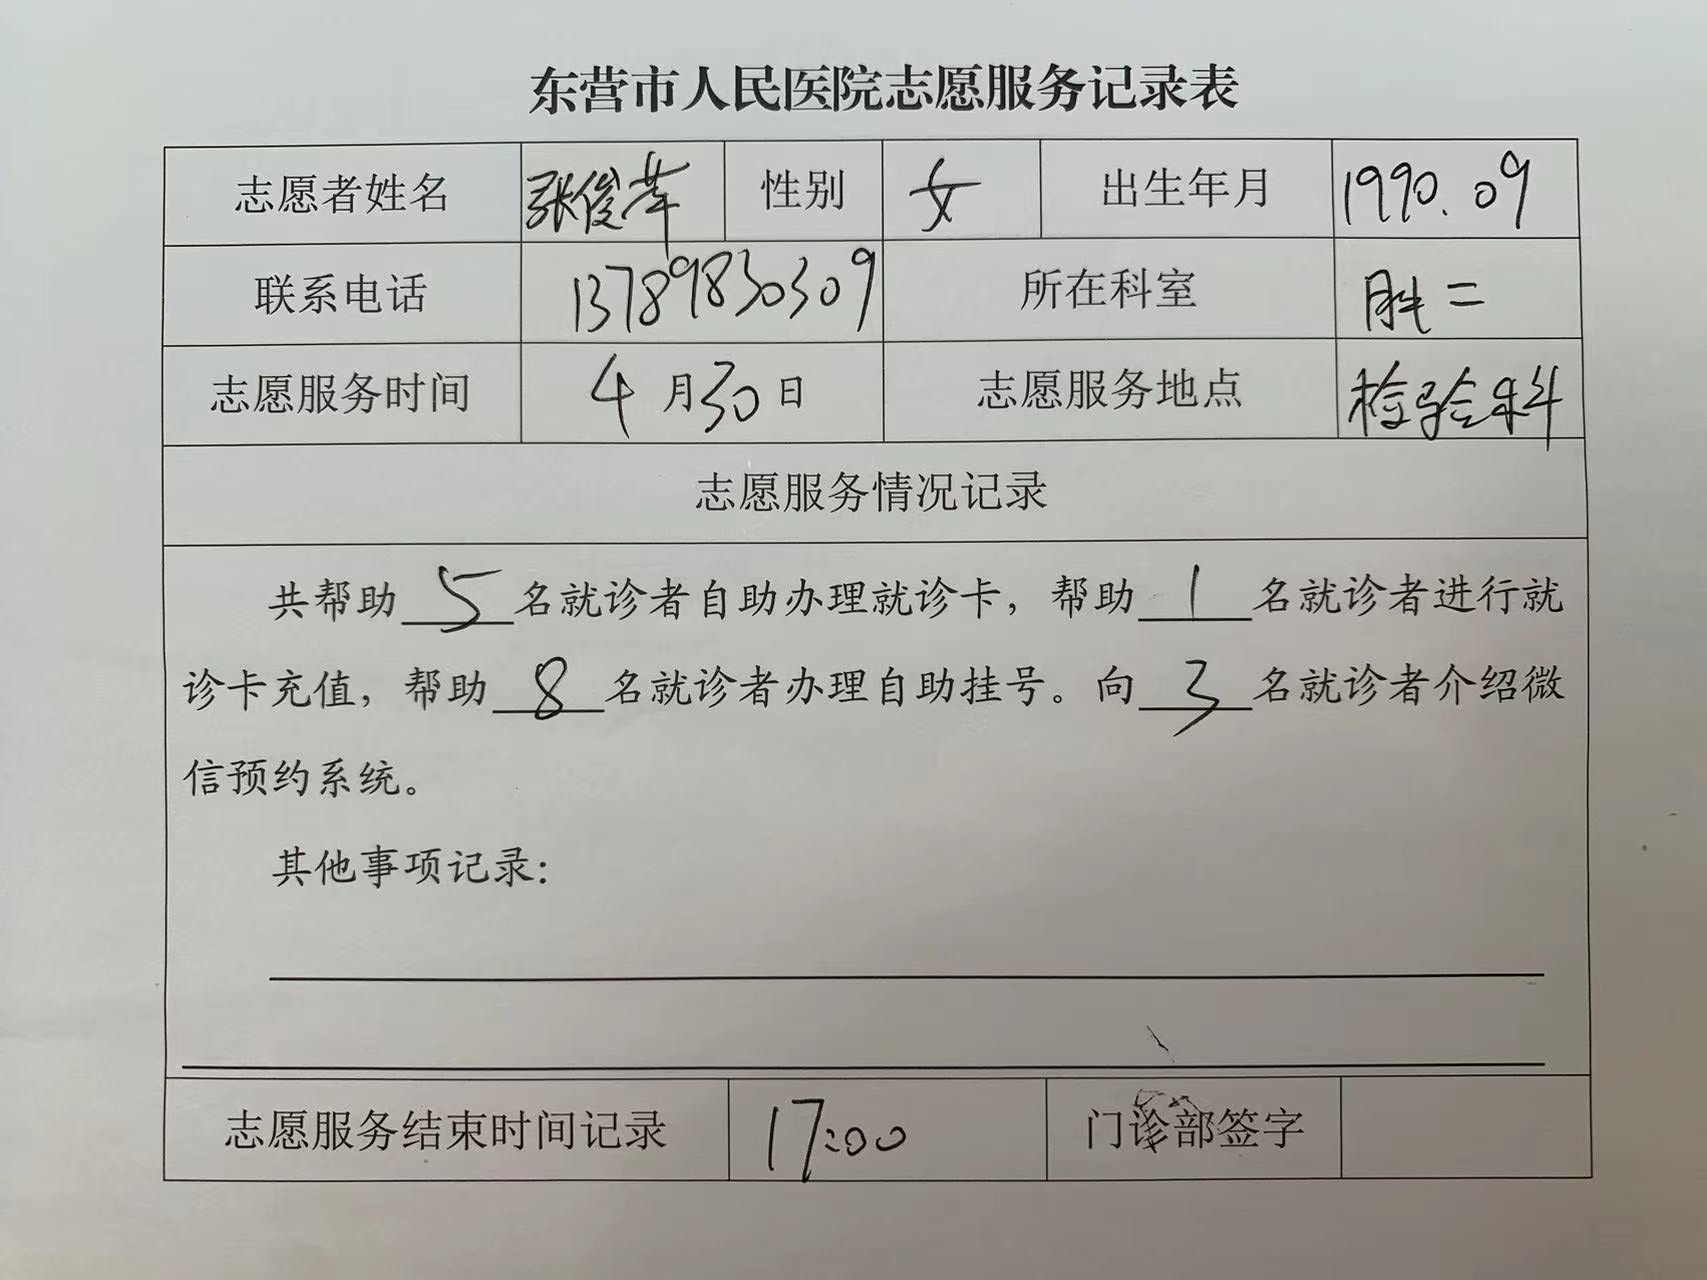 东营市人民医院志愿服务记录表
志愿者姓名 张俊苹 性别 女 出生年月 1990.09
联系电话 13789830309 所在科室 胜二
志愿服务时间 4月30日 志愿服务地点 检验科
志愿服务情况记录
共帮助5名就诊者自助办理就诊卡，帮助1名就诊者进行就
诊卡充值，帮助8名就诊者办理自助挂号。向3名就诊者介绍微
信预约系统。
其他事项记录：
志愿服务结束时间记录 17:00 门诊部签字